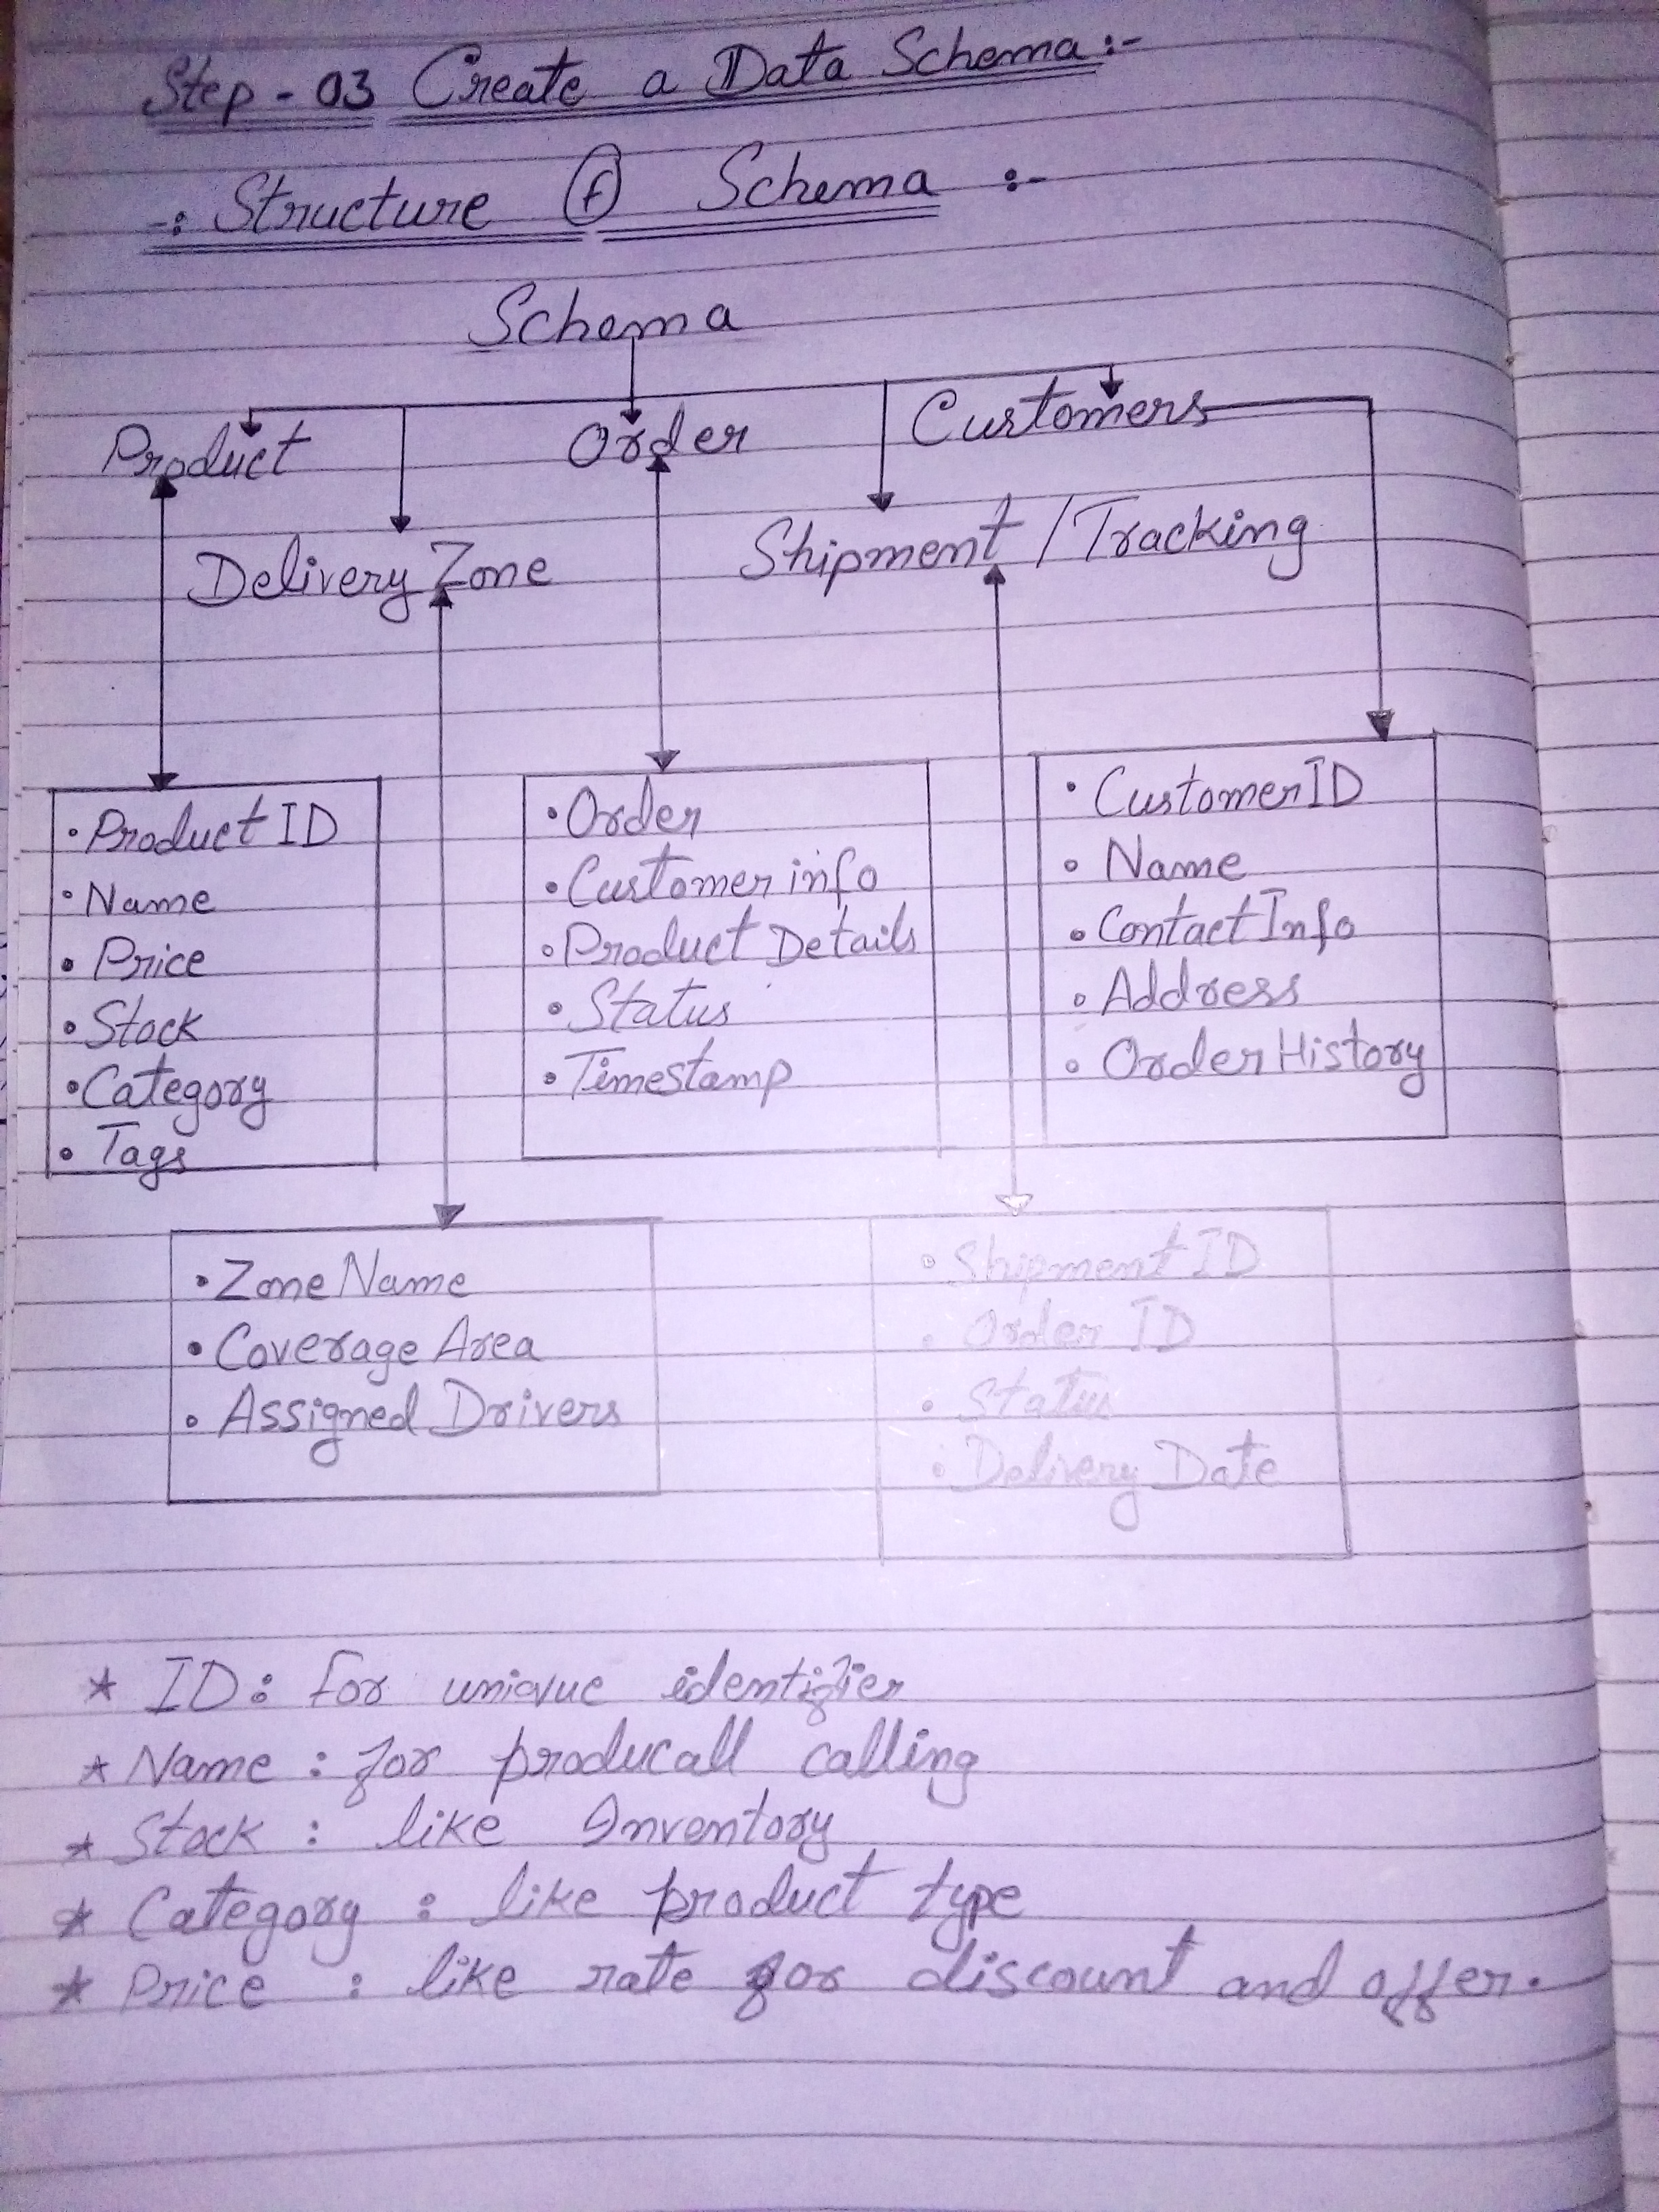 Step - 03 Create a Data Schema :-
-: Structure of Schema :-
Schema
Product
Order
Customers
Delivery Zone
Shipment / Tracking
• Product ID
• Name
• Price
• Stock
• Category
• Tags
• Order
• Customer info
• Product Details
• Status
• Timestamp
• Customer ID
• Name
• Contact Info
• Address
• Order History
• Zone Name
• Coverage Area
• Assigned Drivers
• Shipment ID
• Order ID
• Status
• Delivery Date
* ID : for uniqvue identifier
* Name : for producall calling
* Stock : like Inventory
* Category : like product type
* Price : like rate for discount and offer.